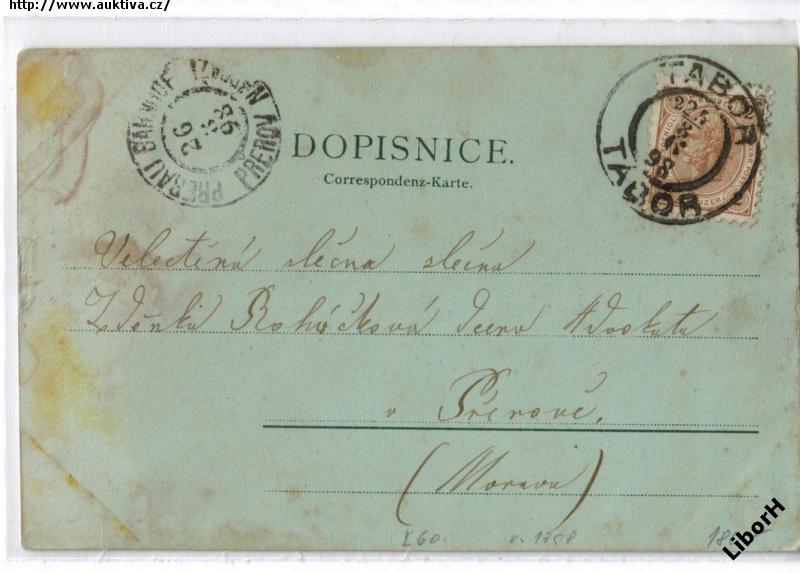 http://www.auktiva.cz/
PRERAU BAHNHOF
PREROV NÁDRAŽÍ
26
98
TABOR
98
TÁBOR
KREUZER
DOPISNICE.
Correspondenz-Karte.
Velectěná slečna slečna
Zdeňka Roháčková dcera Advokata
v Přerově.
(Morava)
LiborH